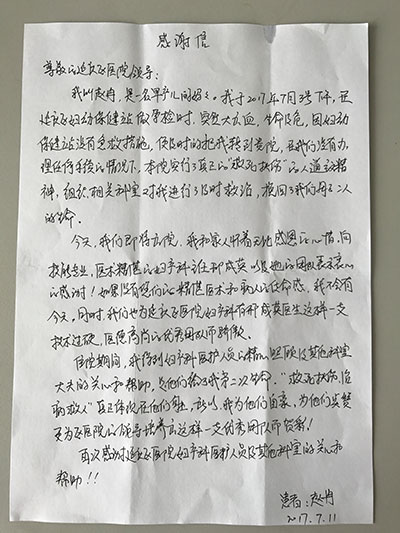 感谢信
尊敬的延庆区医院领导:
我叫赵冉,是一名早产儿间妈妈。我于2017年7月3号下午,在
延庆区妇幼保健站做掌检时,突发大出血,生命垂危,因妇幼
保健站没有急救措施,使及时的把我转到贵院,在我们没有办
理任何手续的情况下,本院实行了真正的"救死扶伤"的人道主义精
神,组织相关科室对我进行了及时救治,挽回了我们母子二人
的生命。
今天,我们即将办院,我和家人怀着无比感恩的心情,向
技能专业,医术精湛的妇产科主任邢成英以及她的团队表示衷心
的感谢!如果没有您们的精湛医术和救人的使命感,我不会有
今天,同时我们也为延庆区医院妇产科有邢成英医生这样一支
技术过硬,医德高尚的优秀团队而骄傲。
住院期间,我得到妇产科医护人员的精心照顾及其他科室
大夫的关心和帮助,是他们给了我第二次生命。"救死扶伤,治
病救人"真正体现在他们身上,所以,我为他们自豪,为他们点赞
更为区医院的领导培养出这样一支优秀团队而赞彩!
再次感谢延庆区医院妇产科医护人员及其他科室的关心和
帮助!!
患者:赵冉
2017.7.11